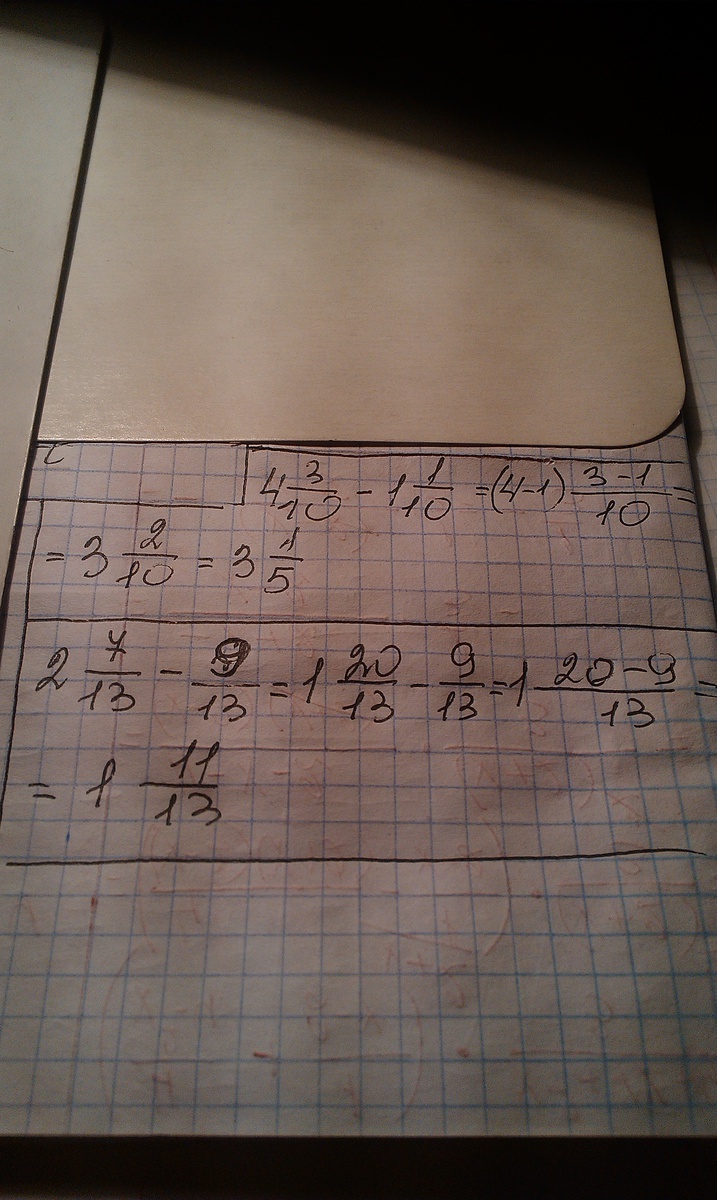 4 3/10 - 1 1/10 = (4-1) 3-1/10 =
= 3 2/10 = 3 1/5
2 7/13 - 9/13 = 1 20/13 - 9/13 = 1 20-9/13 =
= 1 11/13